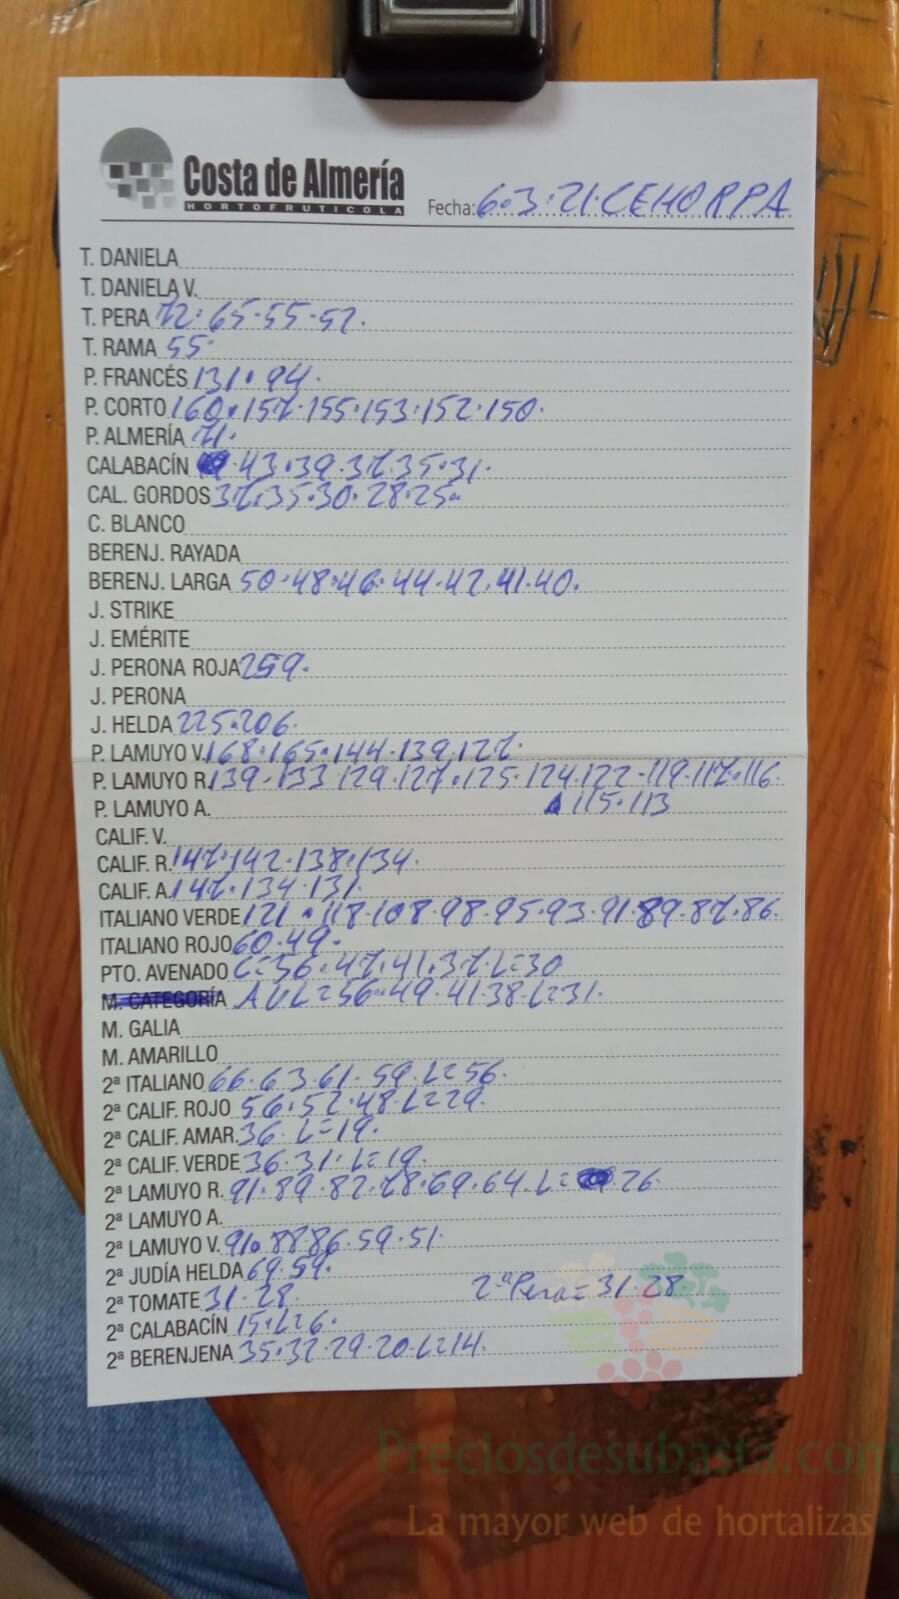 Costa de Almería
HORTOFRUTICOLA
Fecha: 6·3·21·CEHORPA
T. DANIELA
T. DANIELA V.
T. PERA 72·65·55·52.
T. RAMA 55·
P. FRANCÉS 131·94.
P. CORTO 160·157·155·153·152·150.
P. ALMERÍA 71.
CALABACÍN ·43·39·37·35·31.
CAL. GORDOS 37·35·30·28·25.
C. BLANCO
BERENJ. RAYADA
BERENJ. LARGA 50·48·46·44·42·41·40.
J. STRIKE
J. EMÉRITE
J. PERONA ROJA 259.
J. PERONA
J. HELDA 225·206.
P. LAMUYO V. 168·165·144·139·127.
P. LAMUYO R. 139·133·129·127·125·124·122·119·117·116
P. LAMUYO A. 115·113
CALIF. V.
CALIF. R. 147·142·138·134.
CALIF. A. 147·134·131.
ITALIANO VERDE 121·118·108·98·95·93·91·89·87·86.
ITALIANO ROJO 60·49.
PTO. AVENADO C=56·47·41·37·L=30
M. CATEGORÍA AVL=56·49·41·38·L=31.
M. GALIA
M. AMARILLO
2ª ITALIANO 66·63·61·59·L=56.
2ª CALIF. ROJO 56·52·48·L=29.
2ª CALIF. AMAR. 36·L=19.
2ª CALIF. VERDE 36·31·L=19.
2ª LAMUYO R. 91·89·82·78·69·64·L= 26.
2ª LAMUYO A.
2ª LAMUYO V. 91·88·86·59·51.
2ª JUDÍA HELDA 69·59.
2ª TOMATE 31·28. 2ª Pera=31·28.
2ª CALABACÍN 15·L=6.
2ª BERENJENA 35·32·29·20·L=14.
Preciosdesubasta.com
La mayor web de hortalizas